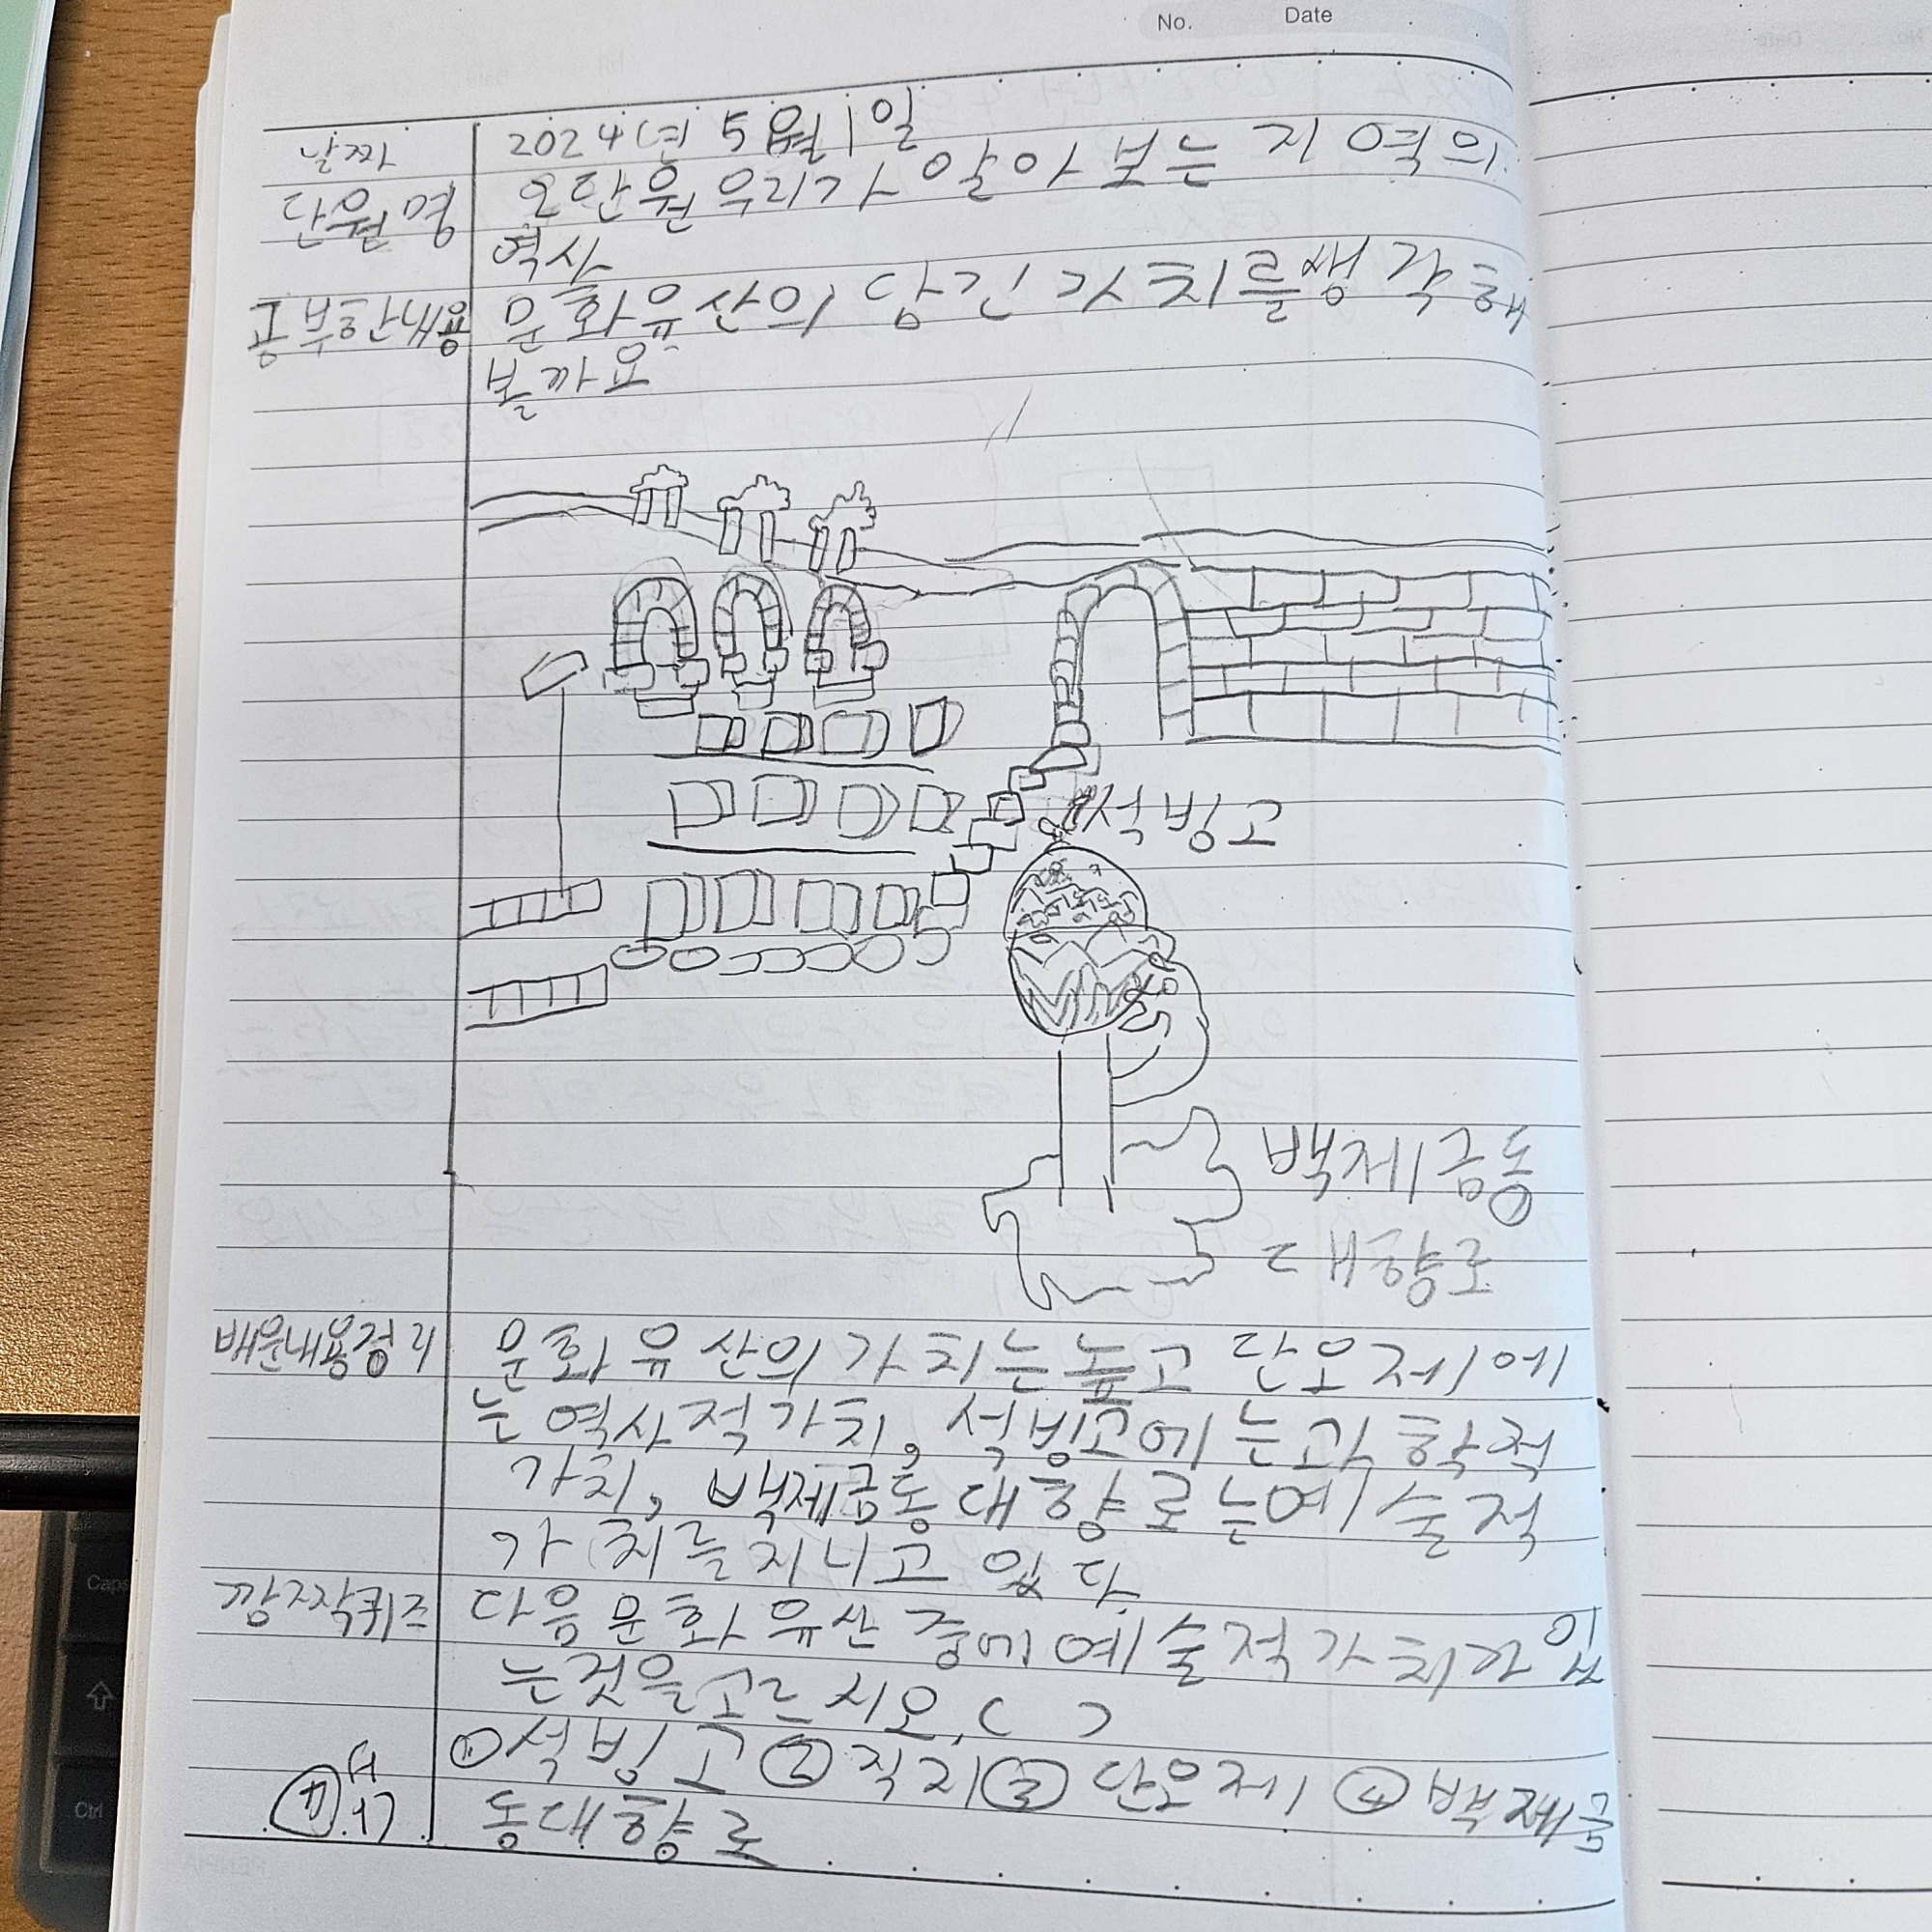 No. Date
날짜 2024년 5월 1일
단원명 2단원 우리가 알아보는 지역의
역사
공부한내용 문화유산의 담긴 가치를 생각해
볼까요
석빙고
백제금동
대향로
배운내용정리 문화유산의 가치는 높고 단오제에
는 역사적가치, 석빙고에는 과학적
가치, 백제금동대향로는 예술적
가치를 지니고 있다.
깜짝퀴즈 다음 문화유산 중에 예술적가치가 있
는것을고르시오. ( )
①석빙고 ②직지 ③단오제 ④백제금
동대향로
답 ④
Caps
Ctrl